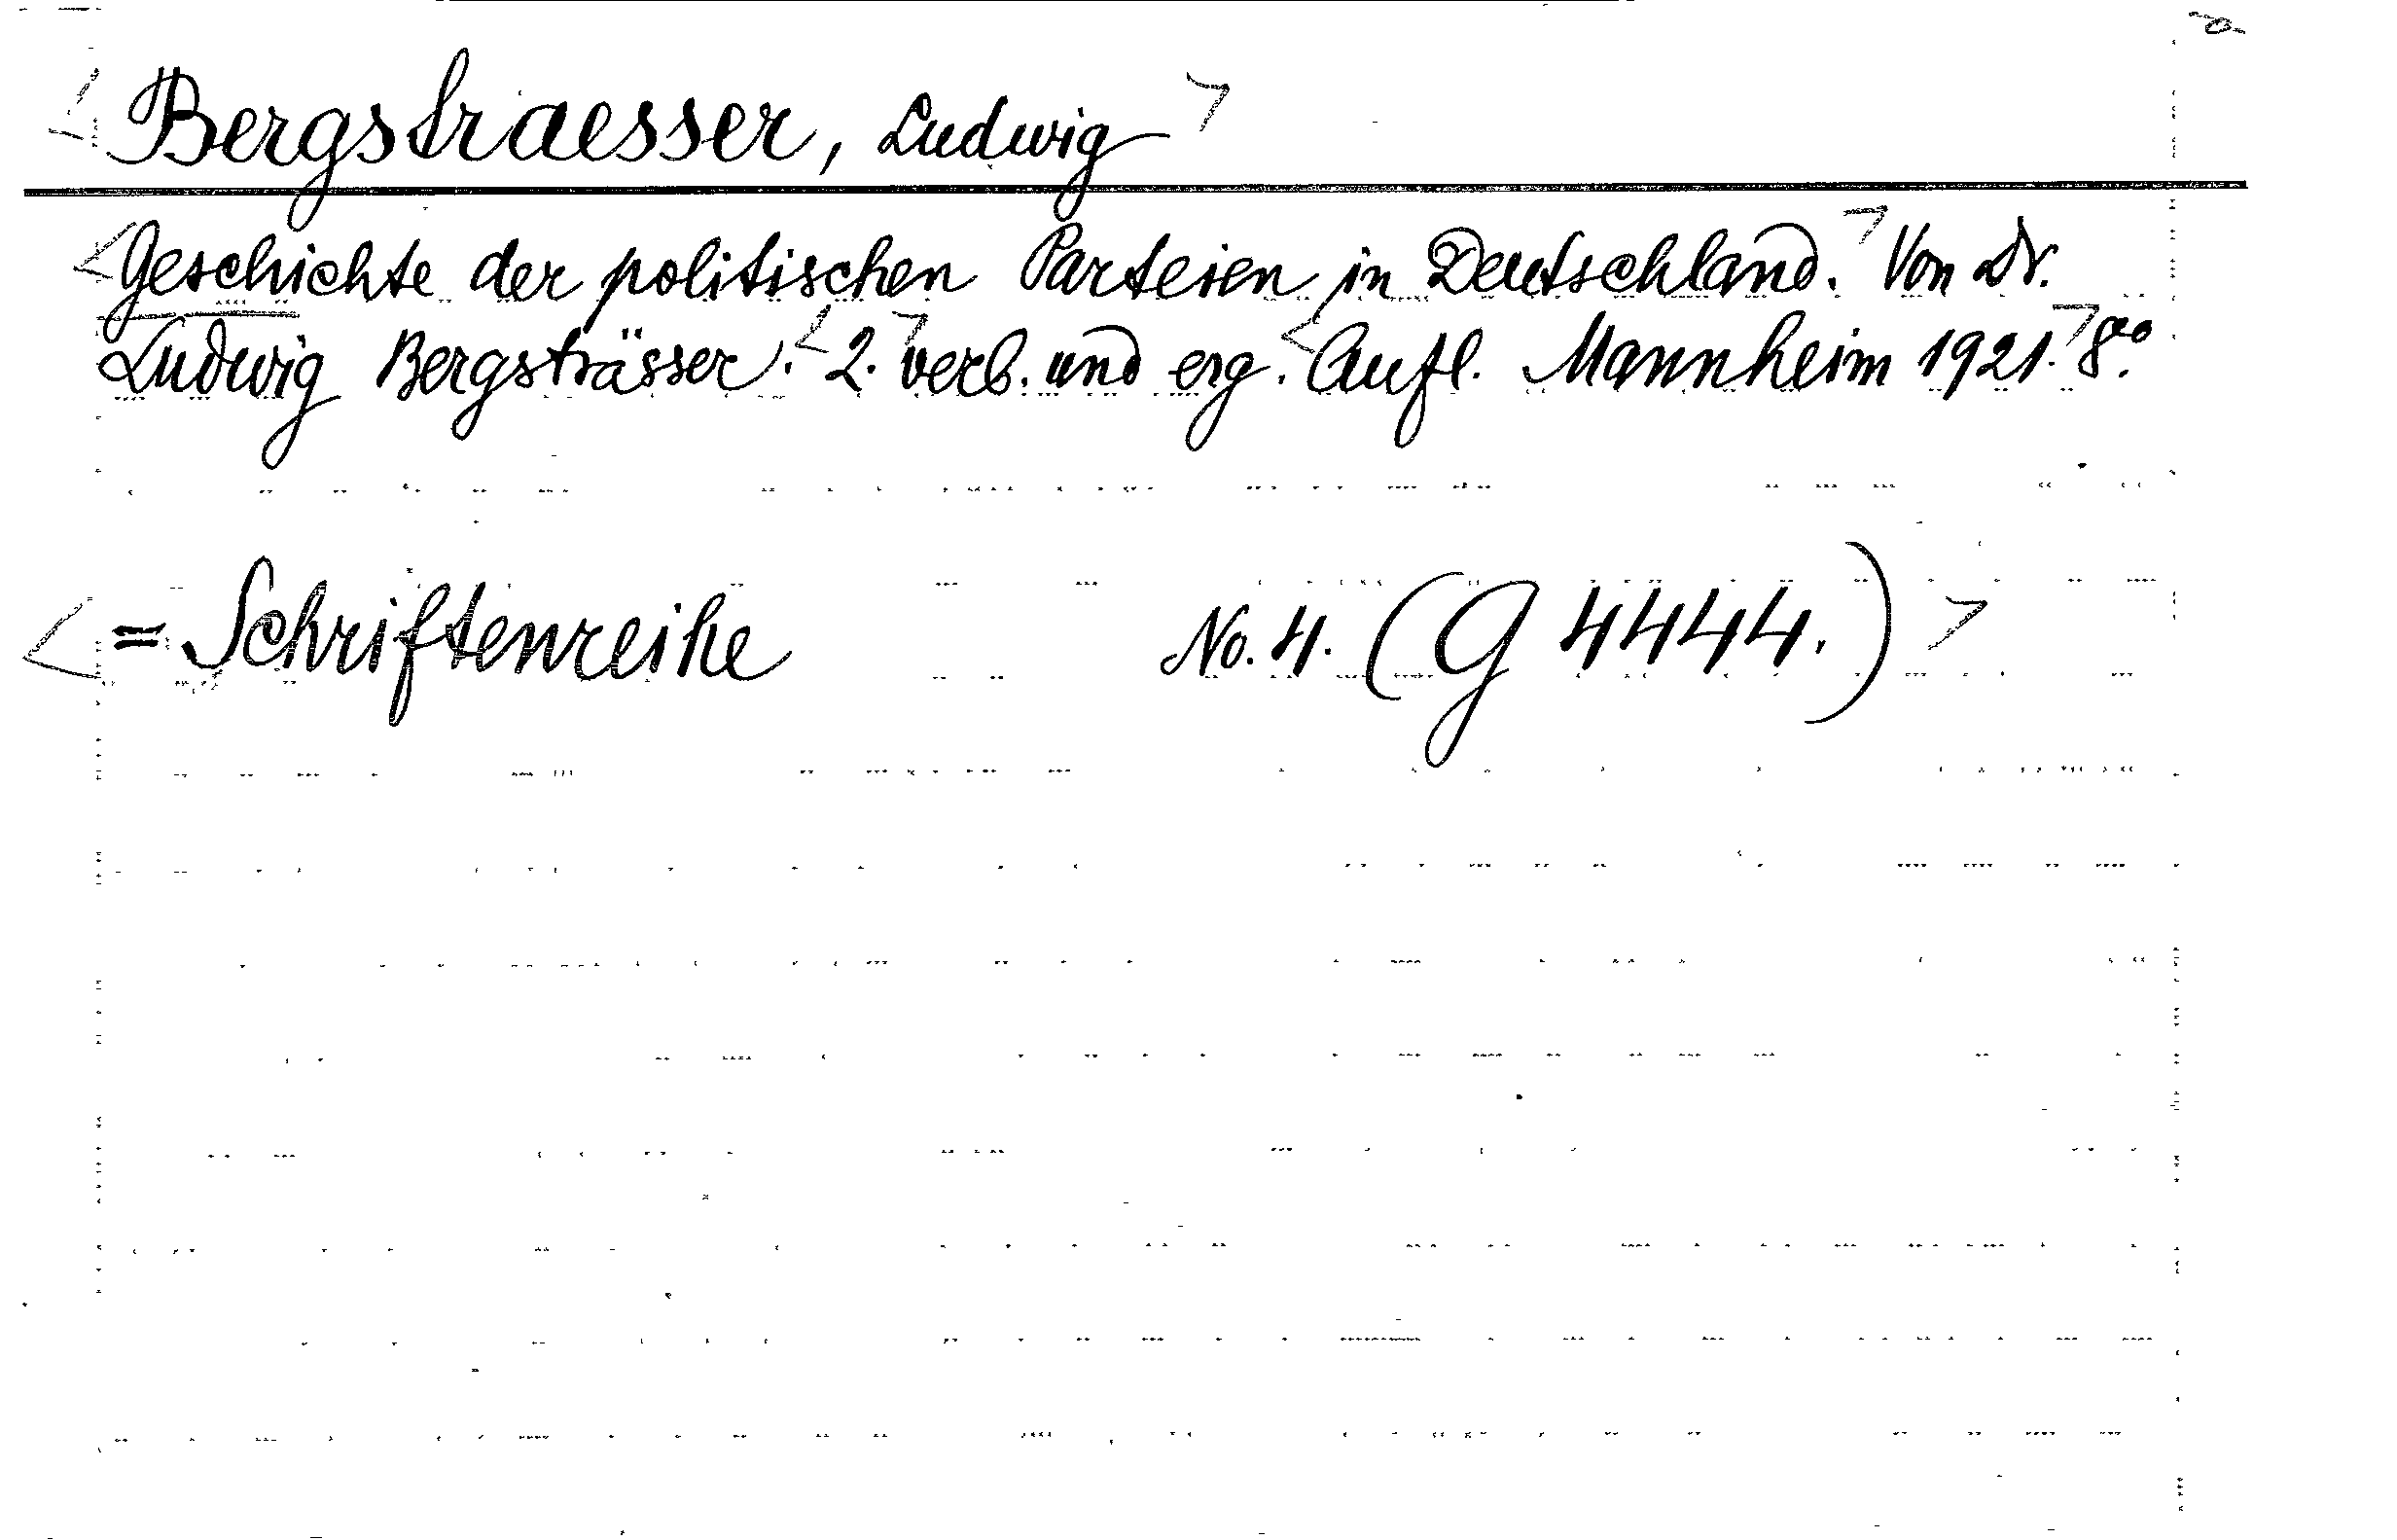 <Bergstraesser, Ludwig>
<Geschichte der politischen Parteien in Deutschland.> Von Dr.
Ludwig Bergsträsser. <2.> verb. und erg. <Aufl. Mannheim 1921.> 8°.
<= Schriftenreihe No. 4. (G 4444.)>